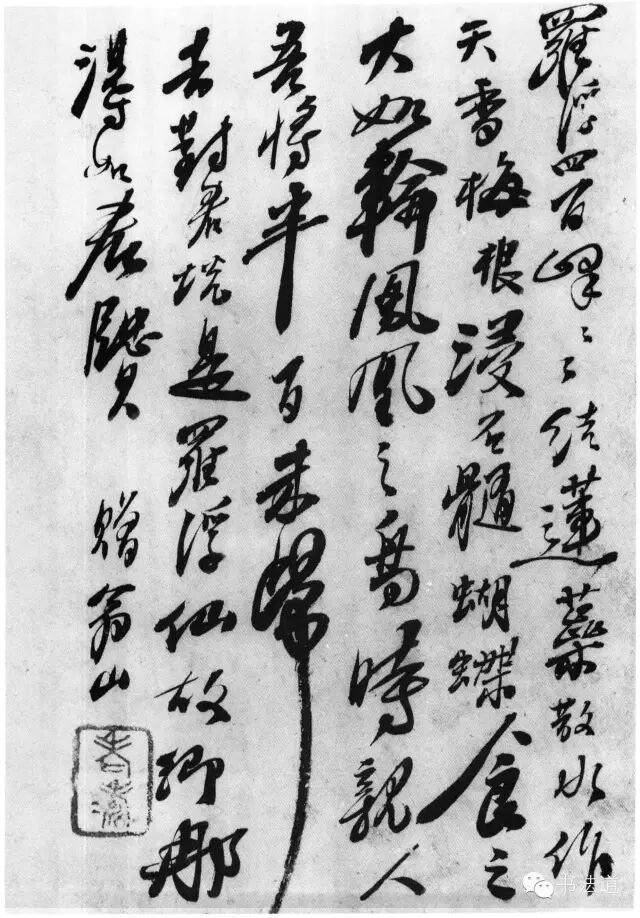 羅浮四百峰〻〻結蓮蕊散水作
天雪梅根浸石髓蝴蝶食之
大如輪鳳凰之時親人
吾將半百未歸
去對君說是羅浮仙故鄉那
得如君賢 贈翁山
书法道